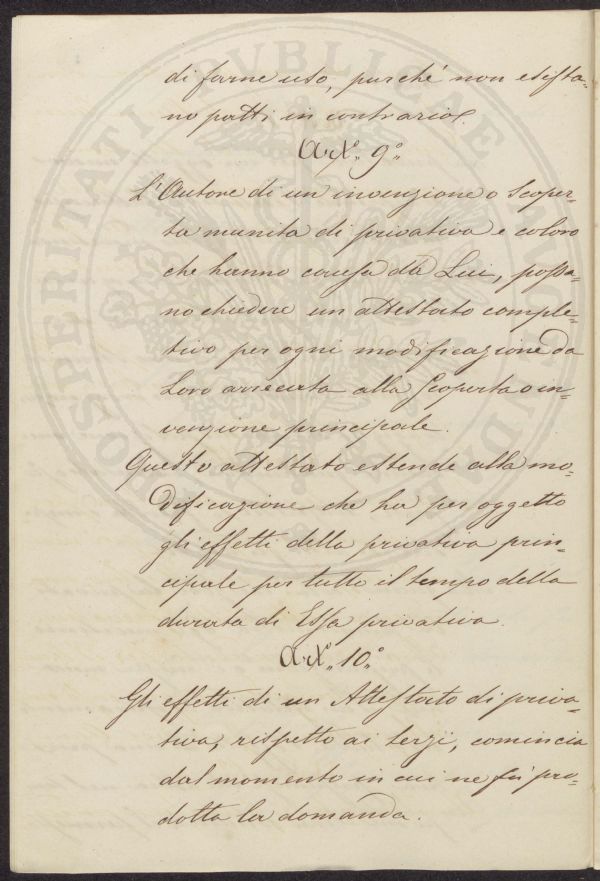 di farne uso, purché non esista-
no patti in contrario.
Art.° 9.°
L'Autore di un invenzione o Scoper-
ta munita di privativa e coloro
che hanno causa da Lui, possa-
no chiedere un attestato comple-
tivo per ogni modificazione da
Loro arrecata alla Scoperta o in-
venzione principale.
Questo attestato estende alla mo-
dificazione che ha per oggetto
gli effetti della privativa prin-
cipale per tutto il tempo della
durata di Essa privativa.
Art.° 10.°
Gli effetti di un Attestato di priva-
tiva, rispetto ai terzi, comincia
dal momento in cui ne fù pro-
dotta la domanda.
PROSPERITATI PUBLICAE